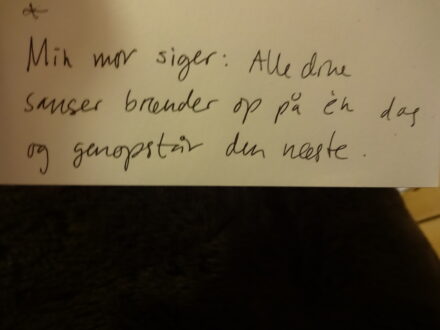 *
Min mor siger: Alle dine
sanser brænder op på én dag
og genopstår den næste.